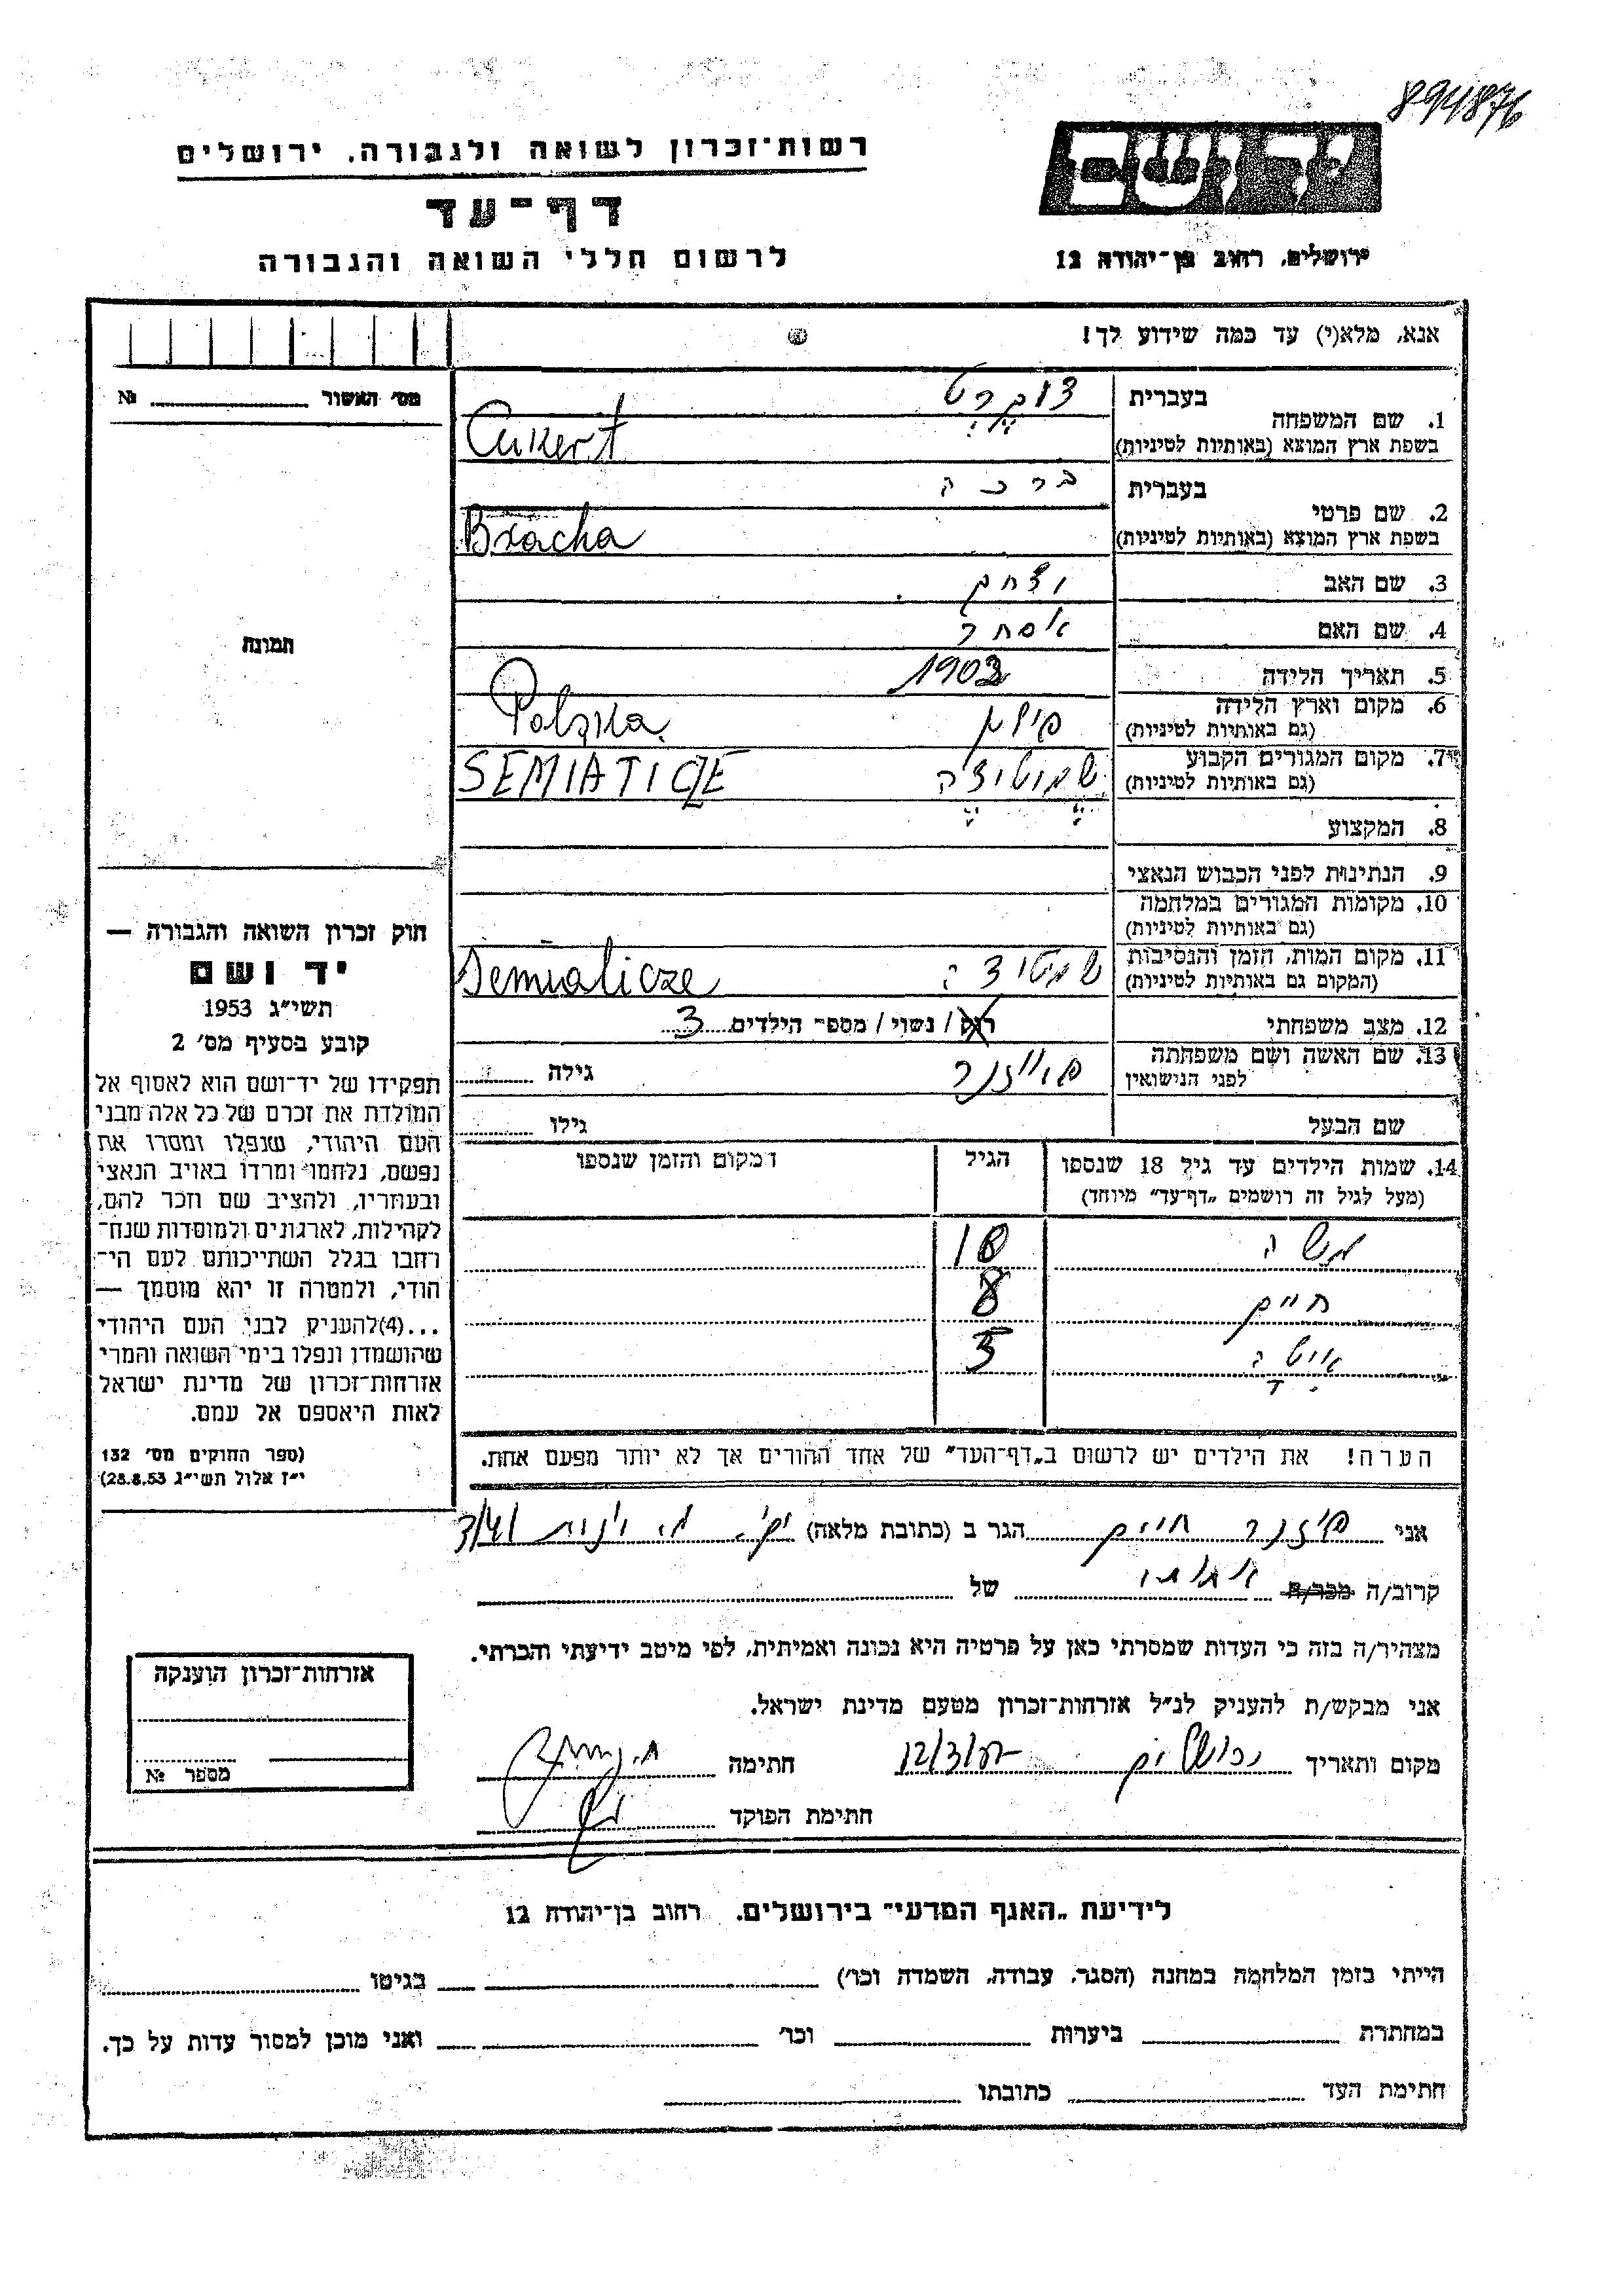 894876
רשות־זכרון לשואה ולגבורה, ירושלים
דף־עד
לרשום חללי השואה והגבורה
יד ושם
ירושלים, רחוב בן־יהודה 12
אנא, מלא(י) עד כמה שידוע לך!
מס׳ האשור №
תמונה
חוק זכרון השואה והגבורה —
יד ושם
תשי״ג 1953
קובע בסעיף מס׳ 2
תפקידו של יד־ושם הוא לאסוף אל
המולדת את זכרם של כל אלה מבני
העם היהודי, שנפלו ומסרו את
נפשם, נלחמו ומרדו באויב הנאצי
ובעוזריו, ולהציב שם וזכר להם,
לקהילות, לארגונים ולמוסדות שנח־
רחבו בגלל השתייכותם לעם הי־
הודי, ולמטרה זו יהא מוסמך —
...(4)להעניק לבני העם היהודי
שהושמדו ונפלו בימי השואה והמרי
אזרחות־זכרון של מדינת ישראל
לאות היאספם אל עמם.
(ספר החוקים מס׳ 132
י״ז אלול תשי״ג 28.8.53)
1. שם המשפחה
בעברית צוקרט
בשפת ארץ המוצא (באותיות לטיניות) Cukert
2. שם פרטי
בעברית ברכה
בשפת ארץ המוצא (באותיות לטיניות) Bracha
3. שם האב
4. שם האם אסתר
5. תאריך הלידה 1903
6. מקום וארץ הלידה
(גם באותיות לטיניות) Polska
7. מקום המגורים הקבוע
(גם באותיות לטיניות) שמיטיצה SEMIATICZE
8. המקצוע
9. הנתינות לפני הכבוש הנאצי
10. מקומות המגורים במלחמה
(גם באותיות לטיניות)
11. מקום המות, הזמן והנסיבות
(המקום גם באותיות לטיניות) שמטיצה Semiaticze
12. מצב משפחתי רוק / נשוי / מספר הילדים 3
13. שם האשה ושם משפחתה
לפני הנישואין גילה
שם הבעל גילו
14. שמות הילדים עד גיל 18 שנספו הגיל המקום והזמן שנספו
(מעל לגיל זה רושמים „דף־עד״ מיוחד)
משה 10
חיים 8
איטה 5
הערה! את הילדים יש לרשום ב„דף־העד״ של אחד ההורים אך לא יותר מפעם אחת.
אני פיזנר חיים הגר ב (כתובת מלאה)
קרוב/ה מכר/ה של
מצהיר/ה בזה כי העדות שמסרתי כאן על פרטיה היא נכונה ואמיתית, לפי מיטב ידיעתי והכרתי.
אני מבקש/ת להעניק לנ״ל אזרחות־זכרון מטעם מדינת ישראל.
מקום ותאריך ירושלים חתימה
חתימת הפוקד
אזרחות־זכרון הוענקה
מספר №
לידיעת „האגף המדעי״ בירושלים, רחוב בן־יהודה 12
הייתי בזמן המלחמה במחנה (הסגר, עבודה, השמדה וכו׳) בגיטו
במחתרת ביערות וכו׳ ואני מוכן למסור עדות על כך.
חתימת העד כתובתו